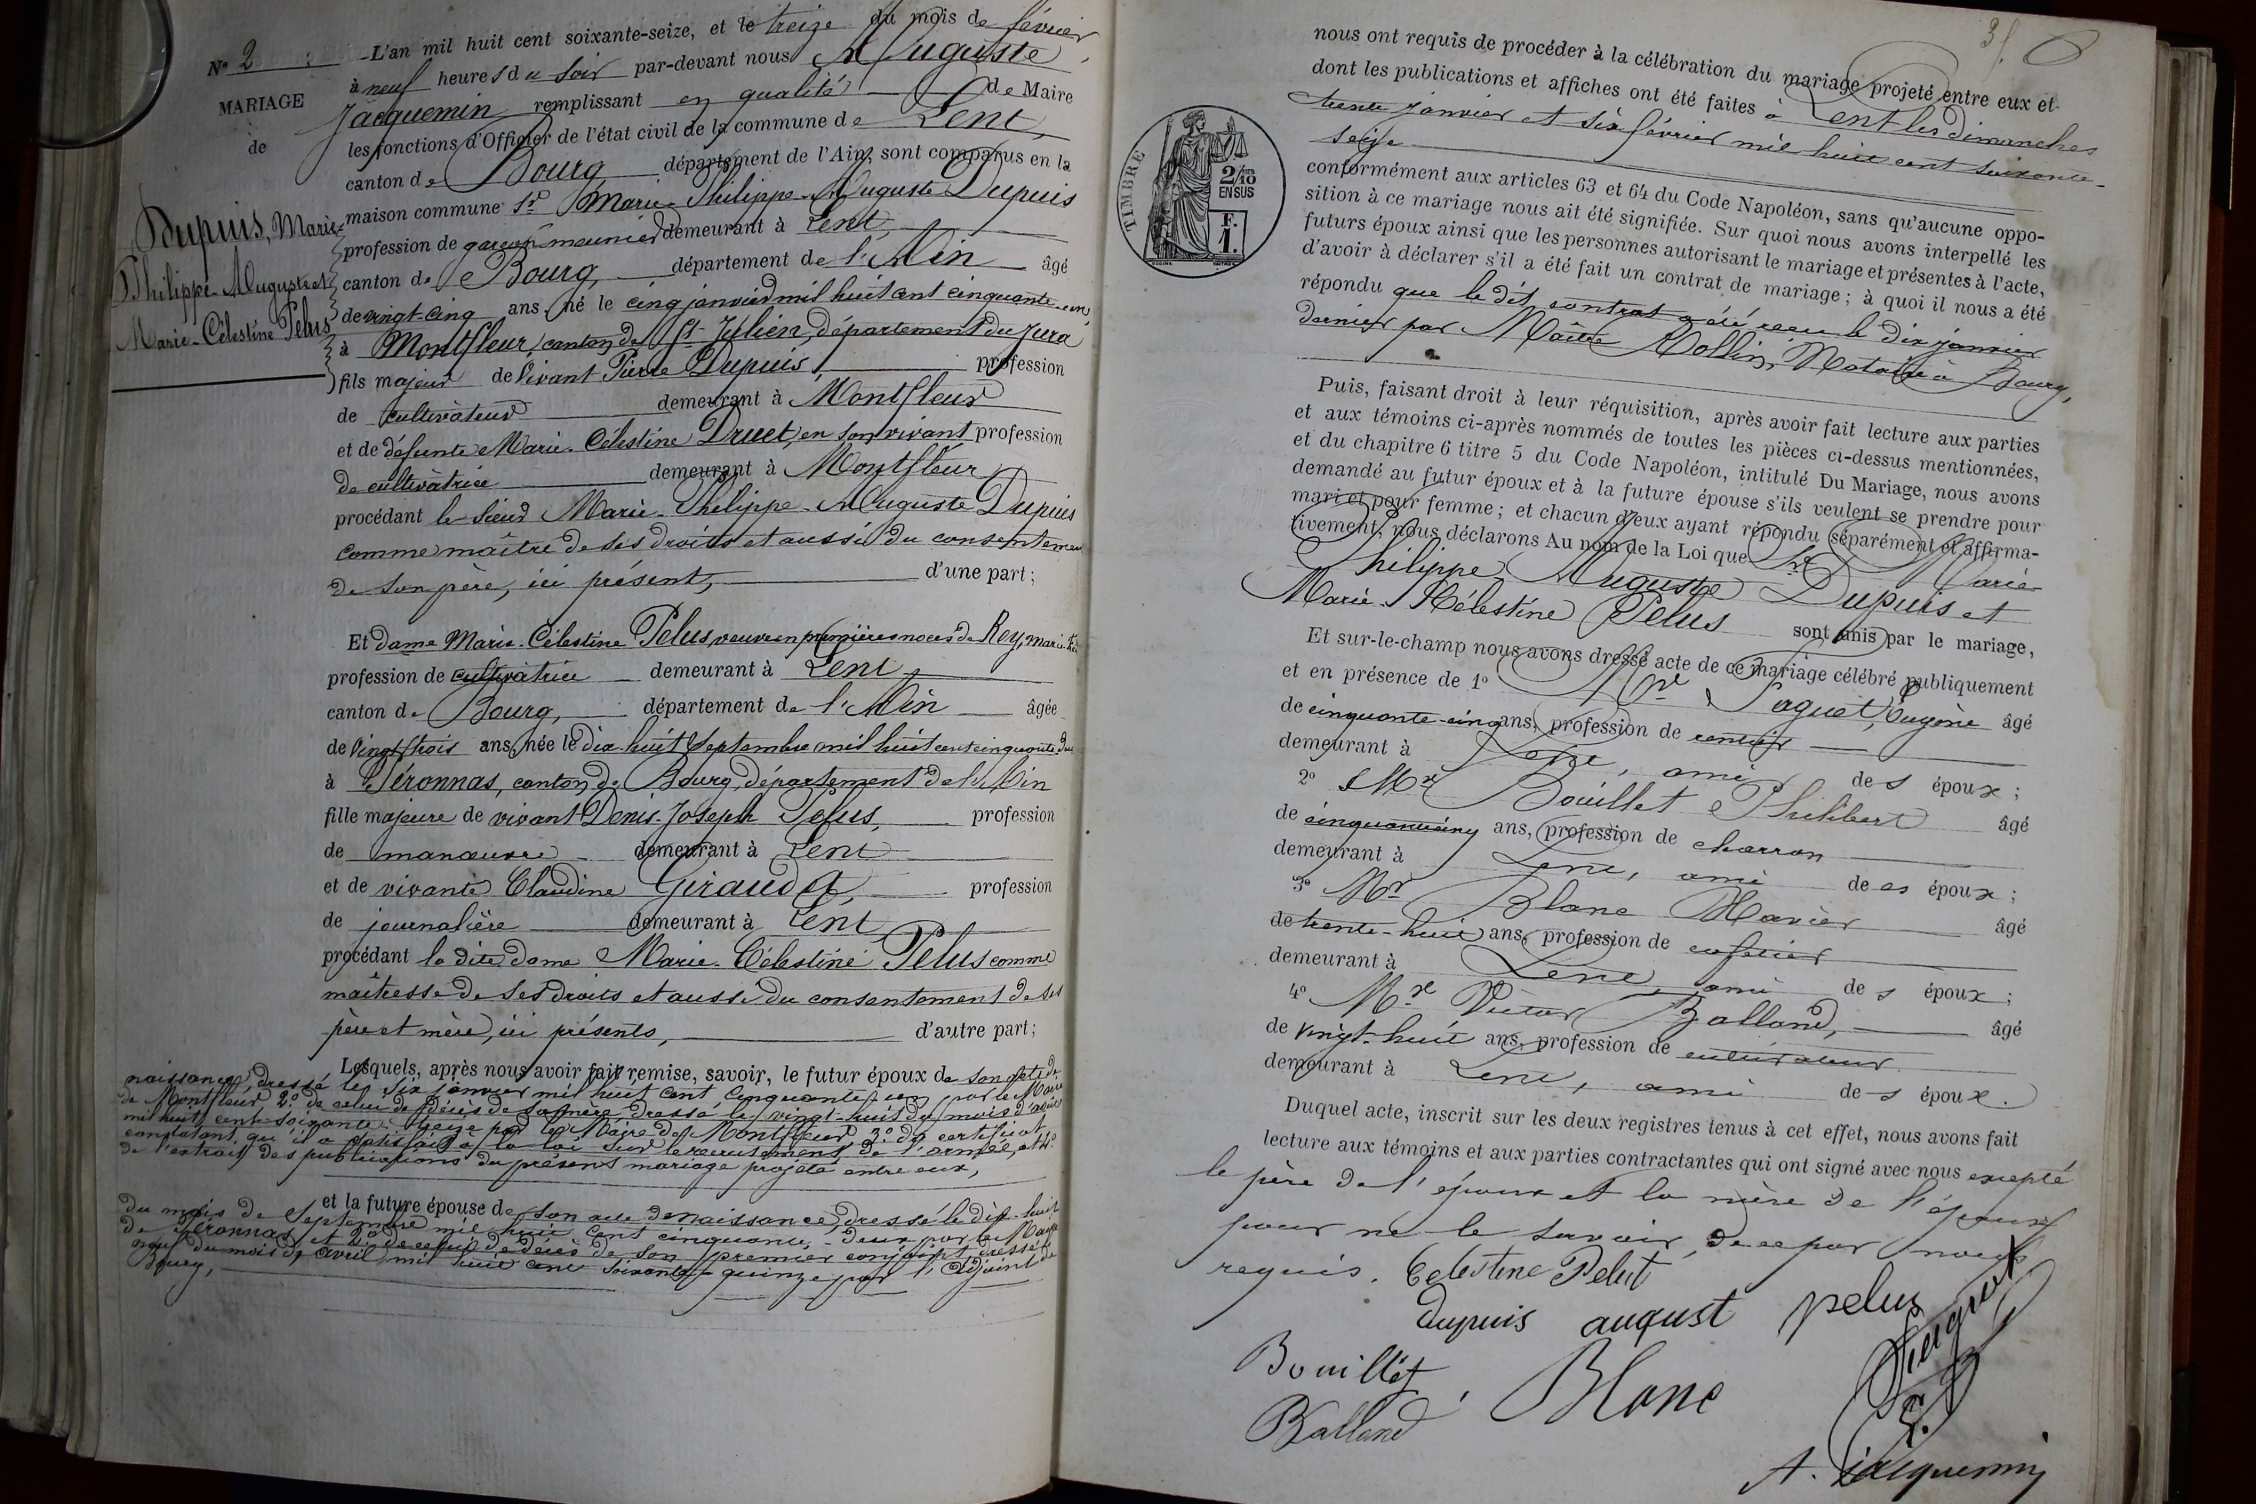 N° 2
MARIAGE
de
Dupuis, Marie-
Philippe-Auguste et
Marie-Célestine Pelus
L'an mil huit cent soixante-seize, et le treize du mois de février,
à neuf heures du soir par-devant nous Auguste
Jacquemin remplissant en qualité de Maire
les fonctions d'Officier de l'état civil de la commune de Lent,
canton de Bourg département de l'Ain, sont comparus en la
maison commune Sr Marie-Philippe-Auguste Dupuis
profession de garçon meunier demeurant à Lent,
canton de Bourg, département de l'Ain âgé
de vingt-cinq ans né le cinq janvier mil huit cent cinquante-un,
à Montfleur, canton de St Julien, département du Jura
fils majeur de vivant Pierre Dupuis, profession
de cultivateur demeurant à Montfleur
et de défunte Marie-Célestine Druet, en son vivant profession
de cultivatrice demeurant à Montfleur,
procédant le sieur Marie-Philippe-Auguste Dupuis
comme maître de ses droits et aussi du consentement
de son père, ici présent, d'une part;
Et dame Marie-Célestine Pelus, veuve en premières noces de Rey,
profession de cultivatrice demeurant à Lent,
canton de Bourg, département de l'Ain âgée
de vingt-trois ans, née le dix-huit Septembre mil huit cent cinquante-deux
à Péronnas, canton de Bourg, département de l'Ain
fille majeure de vivant Denis-Joseph Pelus, profession
de manœuvre demeurant à Lent
et de vivante Claudine Giraud, profession
de journalière demeurant à Lent,
procédant la dite dame Marie-Célestine Pelus comme
maîtresse de ses droits et aussi du consentement de ses
père et mère, ici présents, d'autre part;
Lesquels, après nous avoir fait remise, savoir, le futur époux de son acte de
naissance, dressé le six janvier mil huit cent cinquante-un par le Maire
de Montfleur, 2° de celui de décès de sa mère dressé le vingt-huit du mois d'août
mil huit cent soixante-treize par le Maire de Montfleur, 3° du certificat
constatant qu'il a satisfait à la loi sur le recrutement de l'armée, et 4°
de l'extrait des publications du présent mariage projeté entre eux,
et la future épouse de son acte de naissance, dressé le dix-huit
du mois de Septembre mil huit cent cinquante-deux par le Maire
de Péronnas, et 2° de celui de décès de son premier conjoint dressé le
neuf du mois d'avril mil huit cent soixante-quinze par l'adjoint de
Bourg,
3f.
nous ont requis de procéder à la célébration du mariage projeté entre eux et
dont les publications et affiches ont été faites à Lent les dimanches
trente janvier et six février mil huit cent soixante-
seize
conformément aux articles 63 et 64 du Code Napoléon, sans qu'aucune oppo-
sition à ce mariage nous ait été signifiée. Sur quoi nous avons interpellé les
futurs époux ainsi que les personnes autorisant le mariage et présentes à l'acte,
d'avoir à déclarer s'il a été fait un contrat de mariage; à quoi il nous a été
répondu que le dit contrat a été reçu le dix janvier
dernier par Maître Rollin, Notaire à Bourg,
TIMBRE
2/10
EN SUS
F.
1.
Puis, faisant droit à leur réquisition, après avoir fait lecture aux parties
et aux témoins ci-après nommés de toutes les pièces ci-dessus mentionnées,
et du chapitre 6 titre 5 du Code Napoléon, intitulé Du Mariage, nous avons
demandé au futur époux et à la future épouse s'ils veulent se prendre pour
mari et pour femme; et chacun d'eux ayant répondu séparément et affirma-
tivement, nous déclarons Au nom de la Loi que Sr Marie-
Philippe-Auguste Dupuis et
Marie-Célestine Pelus sont unis par le mariage,
Et sur-le-champ nous avons dressé acte de ce mariage célébré publiquement
et en présence de 1° Mr Paguet, Eugène âgé
de cinquante-cinq ans, profession de rentier
demeurant à Lent, ami des époux;
2° Mr Bouillet Philibert âgé
de ans, profession de charron
demeurant à Lent, ami des époux;
3° Mr Blanc Xavier âgé
de trente-huit ans, profession de cafetier
demeurant à Lent, ami des époux;
4° Mr Victor Balland, âgé
de vingt-huit ans, profession de cultivateur
demeurant à Lent, ami des époux.
Duquel acte, inscrit sur les deux registres tenus à cet effet, nous avons fait
lecture aux témoins et aux parties contractantes qui ont signé avec nous excepté
le père de l'époux et la mère de l'épouse
pour ne le savoir, de ce par nous
requis. Celestine Pelut
dupuis august pelus
Bouillet Blanc
Balland
A. Jacquemin